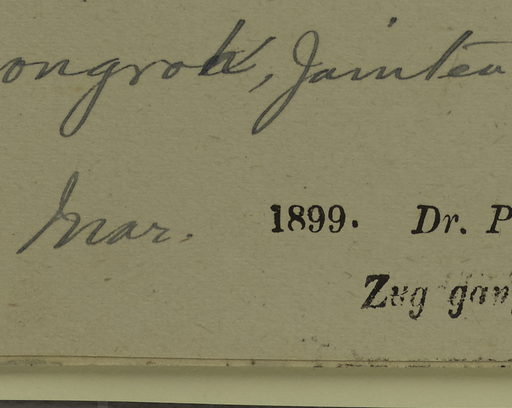 ongrok, Jaintea
Mar. 1899. Dr. P
Zug gan